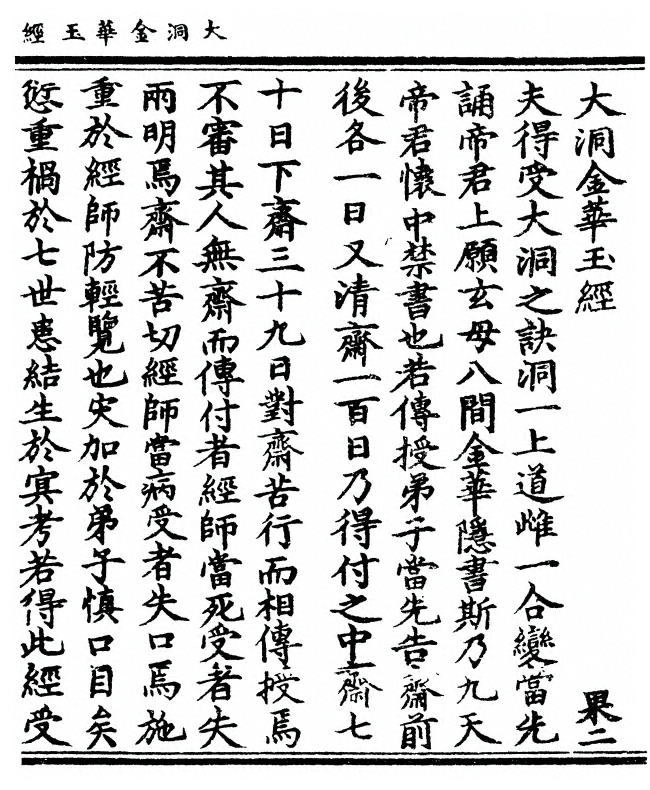 大洞金華玉經
大洞金華玉經
果二
夫得受大洞之訣洞一上道雌一合變當先
誦帝君上願玄母八間金華隱書斯乃九天
帝君懷中禁書也若傳授弟子當先告齋前
後各一日又清齋一百日乃得付之中齋七
十日下齋三十九日對齋苦行而相傳授焉
不審其人無齋而傳付者經師當死受者失
兩明焉齋不苦切經師當病受者失口焉施
重於經師防輕覽也灾加於弟子慎口目矣
愆重禍於七世恵結生於㝠考若得此經受